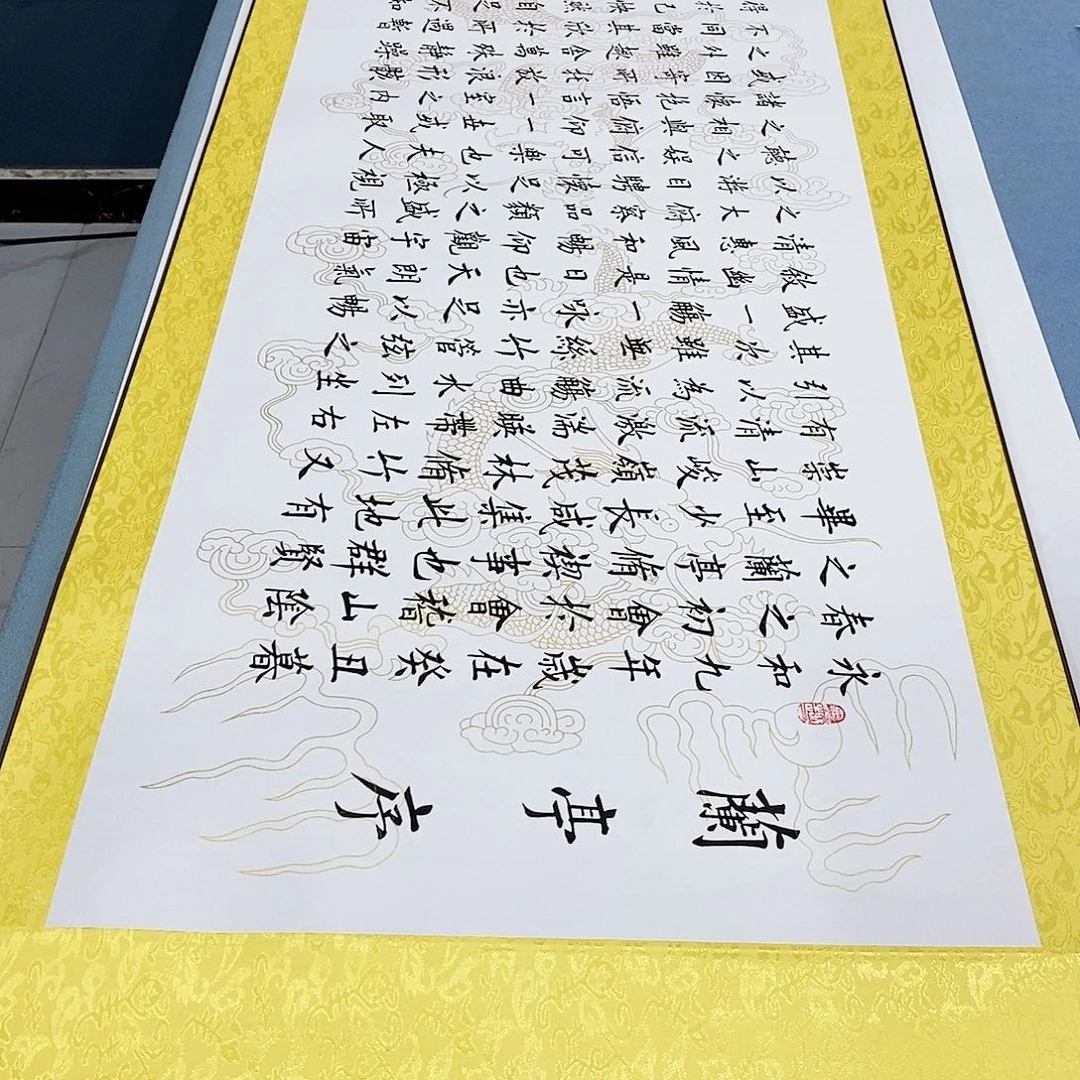 蘭亭序
永和九年歲在癸丑暮
春之初會於會稽山陰
之蘭亭脩禊事也群賢
畢至少長咸集此地有
崇山峻嶺茂林脩竹又
有清流激湍暎帶左右
引以為流觴曲水列坐
其次雖無絲竹管弦之
盛一觴一詠亦足以暢
敘幽情是日也天朗氣
清惠風和暢仰觀宇宙
之大俯察品類之盛所
以游目騁懷足以極視
聽之娛信可樂也夫人
之相與俯仰一世或取
諸懷抱悟言一室之內
或因寄所託放浪形骸
之外雖趣舍萬殊靜躁
不同當其欣於所遇暫
得於己快然自足不知